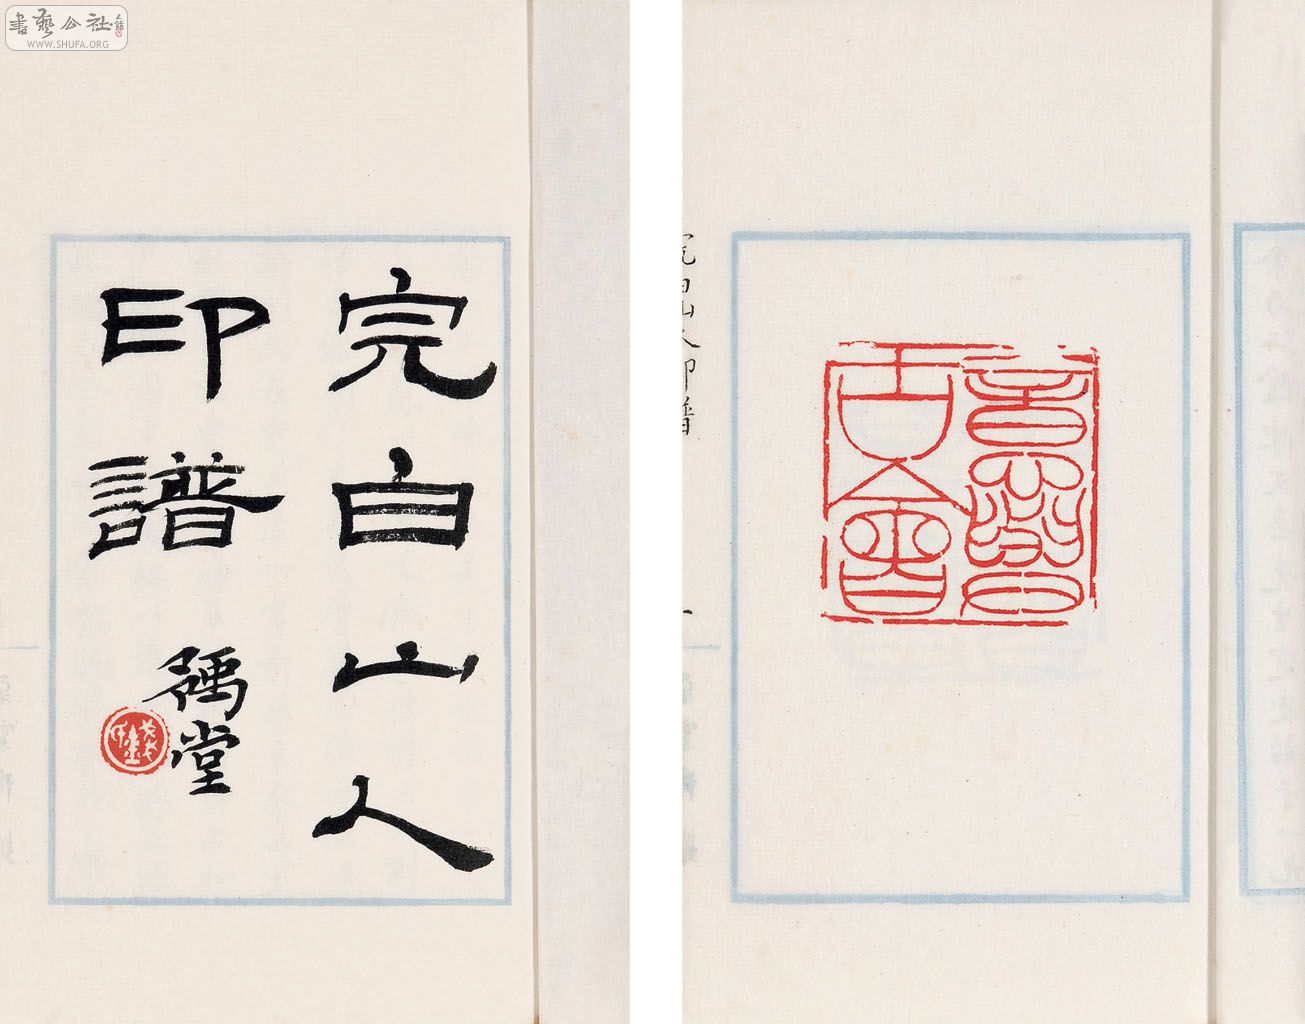 書藝公社
WWW.SHUFA.ORG
完白山人
印譜
禹堂
完白山人印譜
意與古會